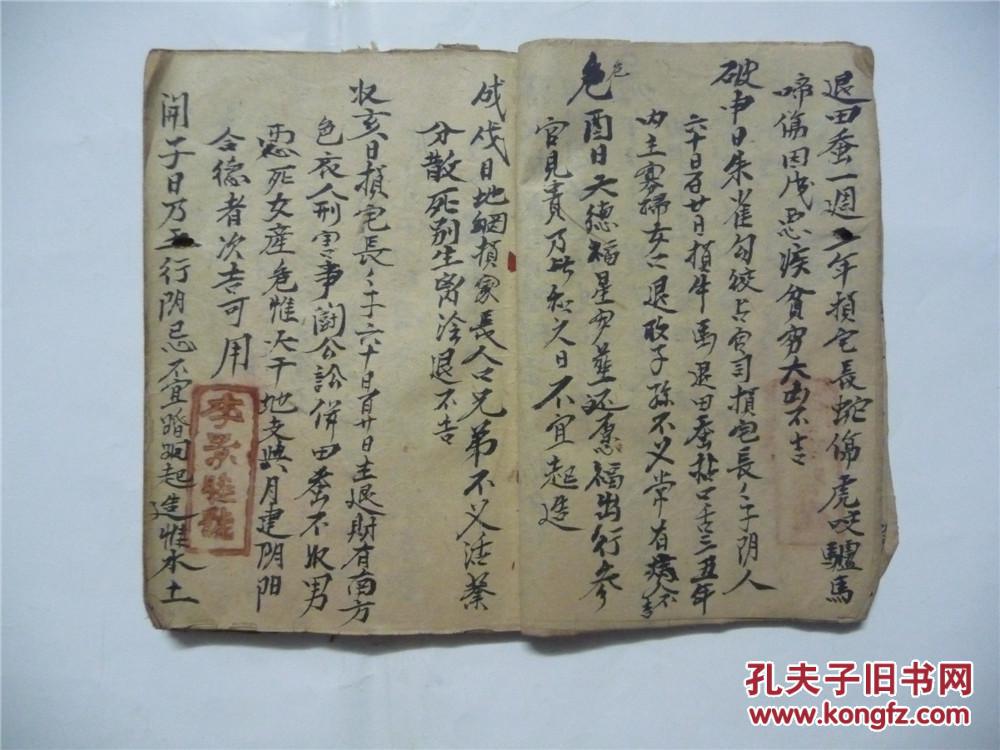 退田蚕一週二年損宅長蛇傷虎咬驢馬
啼傷因成惡疾貧窮大凶不吉
破申日朱雀勾絞占官司損宅長之子阴人
六十日百廿日損牛馬退田蚕招口舌三五年
内主寡婦女人退敗子孫不义常有
危酉日天德福星安葬还愿福出行参
危
官見責乃此知火日不宜起造
成戌日地網損家長人口兄弟不义活業
分散死别生离冷退不吉
收亥日損宅長之子六十日百廿日主退財有南方
色衣人刑害事闘公訟併田蚕不收男
惡死女産危惟天干地支與月建阴阳
合德者次吉可用
開子日乃五行阴忌不宜婚姻起造惟水土
李
孔夫子旧书网
www.kongfz.com